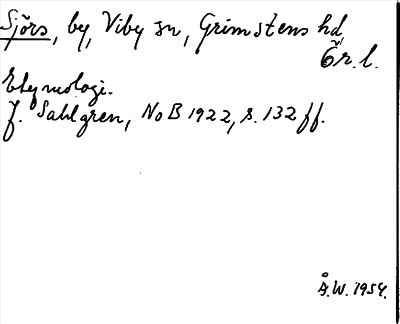 Sjörs, by, Viby sn, Grimstens hd,
Ör. l.
Etymologi.
J. Sahlgren, NoB 1922, s. 132 ff.
Å.W. 1954.